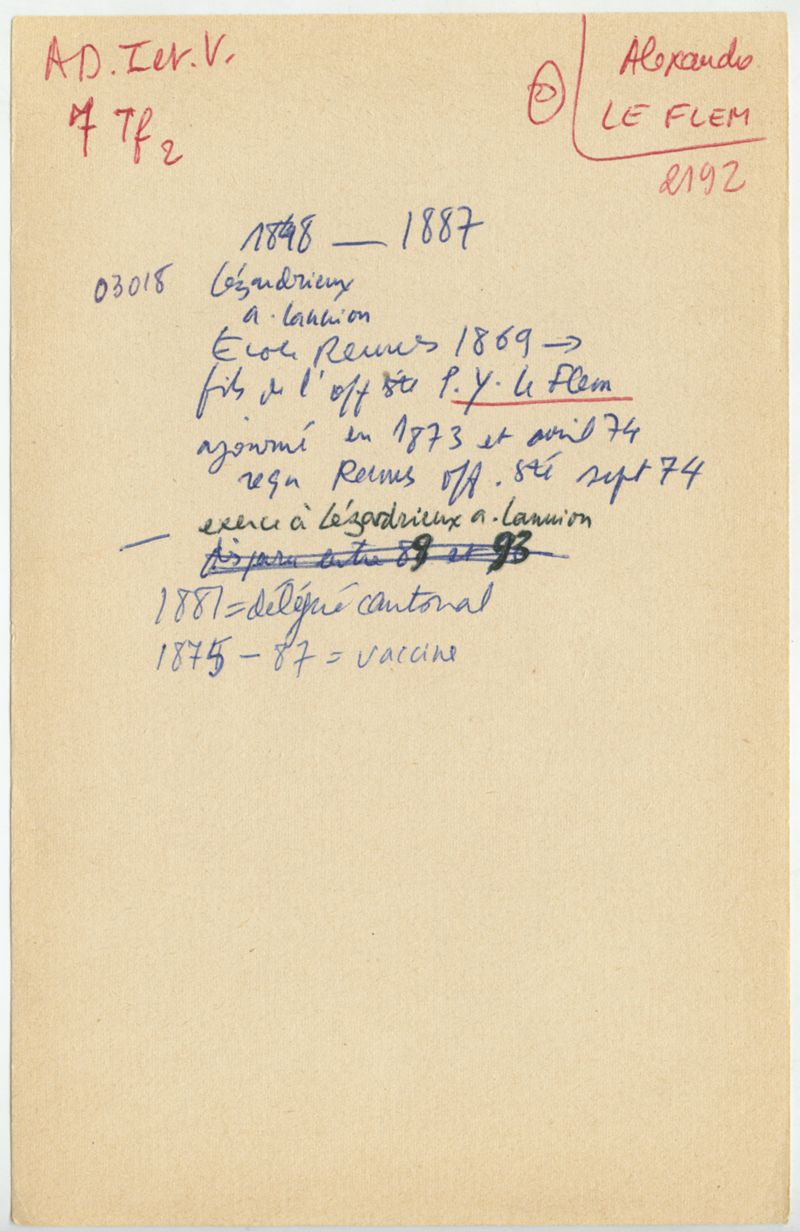 AD. I et. V.
7 Tf 2
Alexandre
LE FLEM
2192
1848 — 1887
03018 Lézardrieux
a. Lannion
Ecole Rennes 1869 →
fils de l'off sté P. Y. Le Flem
ajourné en 1873 et avril 74
reçu Rennes off. sté sept 74
exerce à Lézardrieux a. Lannion
— disparu entre 89 et 93
1881 = délégué cantonal
1875 – 87 = vaccine